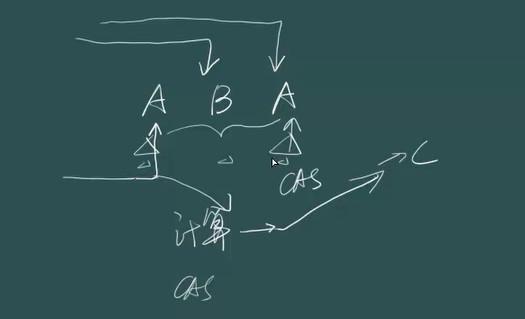 A B A
CAS
C
计算
CAS